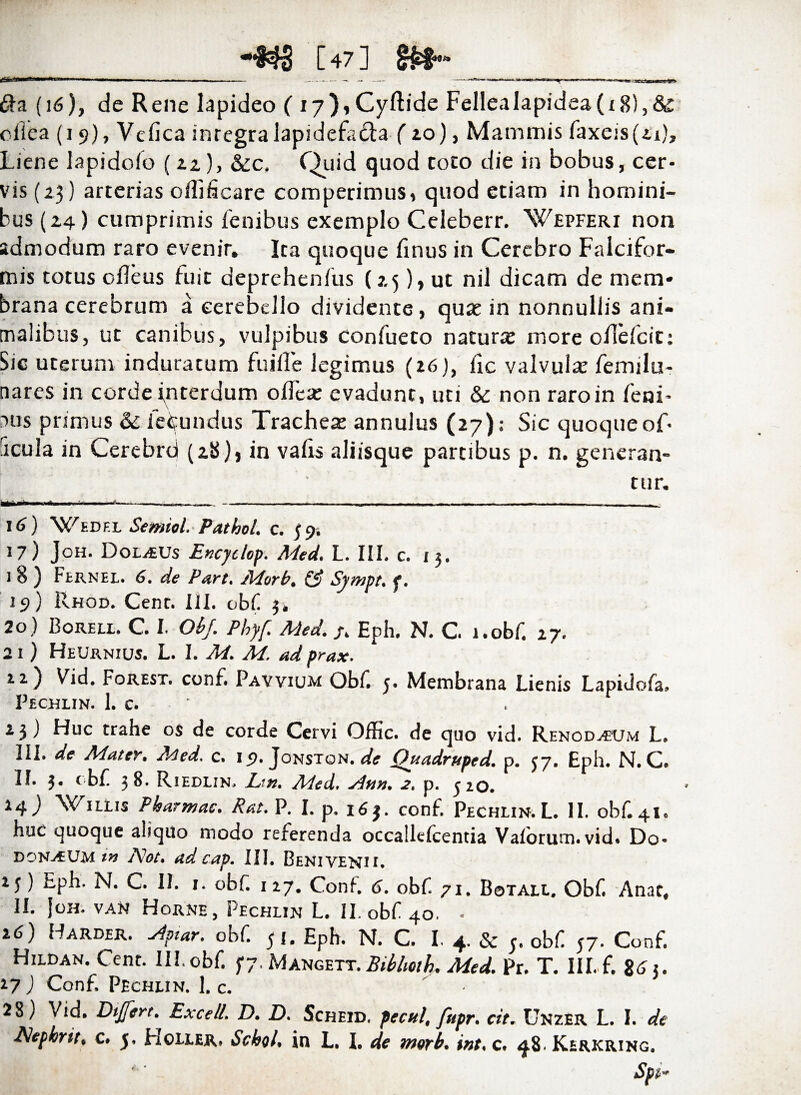 [47]
cta (16), de Rene lapideo (17), Cyſtide Fellea lapidea (18), &
oſſea (19), Veſica integra lapidefacta (20), Mammis ſaxeis (21),
Liene lapidoſo (22), &c. Quid quod toto die in bobus, cer-
vis (23) arterias oſſificare comperimus, quod etiam in homini-
bus (24) cumprimis ſenibus exemplo Celeberr. WEPFERI non
admodum raro evenit. Ita quoque ſinus in Cerebro Falcifor-
mis totus oſſeus fuit deprehenſus (25), ut nil dicam de mem-
brana cerebrum à cerebello dividente, quæ in nonnullis ani-
malibus, ut canibus, vulpibus conſueto naturæ more oſſeſcit:
Sic uterum induratum fuiſſe legimus (26), ſic valvulæ ſemilu-
nares in corde interdum oſſeæ evadunt, uti & non raro in ſeni-
bus primus & ſecundus Tracheæ annulus (27): Sic quoque oſ-
ſicula in Cerebro (28), in vaſis aliisque partibus p. n. generan-
tur.
16) WEDEL Semiol. Pathol. c. 59.
17) JOH. DOLÆUS Encyclop. Med. L. III. c. 13.
18) FERNEL. 6. de Part. Morb. & Sympt. ſ.
19) RHOD. Cent. III. obſ. 3.
20) BORELL. C. I. Obſ. Phyſ. Med. ſ. Eph. N. C. 1. obſ. 27.
21) HEURNIUS. L. I. M. M. ad prax.
22) Vid. FOREST. conf. PAVVIUM Obſ. 5. Membrana Lienis Lapidoſa,
PECHLIN. l. c.
23) Huc trahe os de corde Cervi Offic. de quo vid. RENODÆUM L.
III. de Mater. Med. c. 19. JONSTON. de Quadruped. p. 57. Eph. N. C.
II. 3. obſ. 38. RIEDLIN. Lin. Med. Ann. 2. p. 520.
24) WILLIS Pharmac. Rat. P. I. p. 163. conf. PECHLIN. L. II. obſ. 41.
huc quoque aliquo modo referenda occalleſcentia Vaſorum. vid. DO-
DONÆUM in Not. ad cap. III. BENIVENII.
25) Eph. N. C. II. 1. obſ. 127. Conf. 6. obſ. 71. BOTALL. Obſ. Anat.
II. JOH. VAN HORNE, PECHLIN L. II. obſ. 40.
26) HARDER. Apiar. obſ. 51. Eph. N. C. I. 4. & 5. obſ. 57. Conf.
HILDAN. Cent. III. obſ. 57. MANGETT. Biblioth. Med. Pr. T. III. f. 865.
27) Conf. PECHLIN. l. c.
28) Vid. Diſſert. Excell. D. D. SCHEID. pecul. ſupr. cit. UNZER L. I. de
Nephrit. c. 5. HOLLER. Schol. in L. I. de morb. int. c. 48. KERKRING.
Spi-